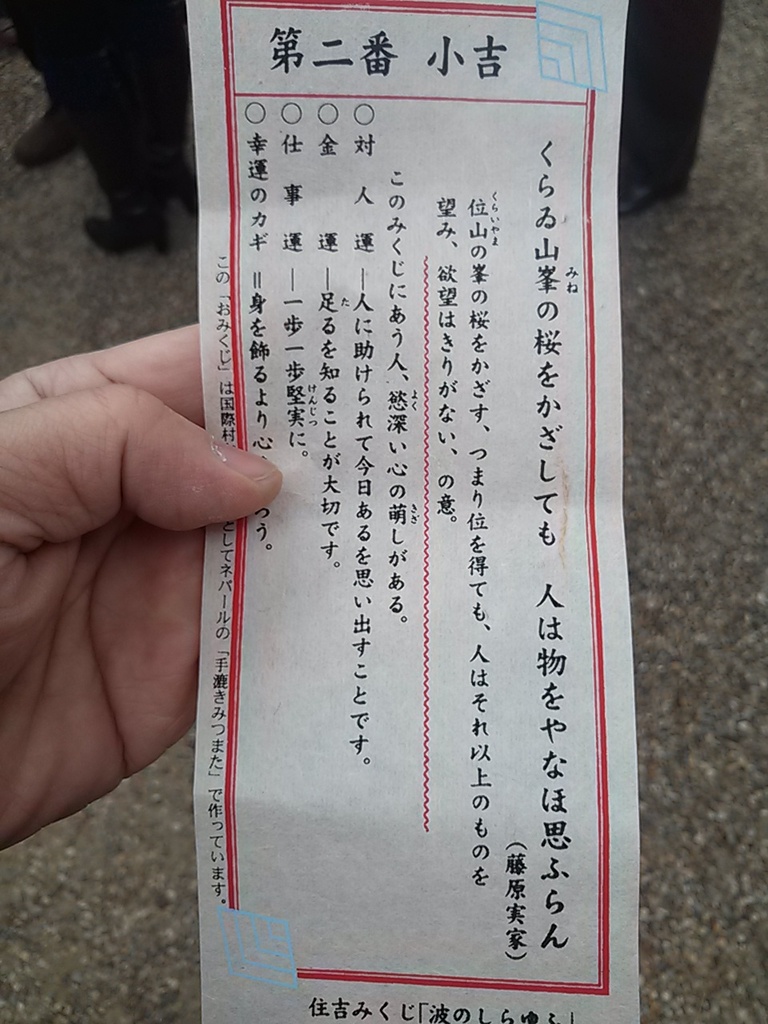 第二番 小吉
くらゐ山峯の桜をかざしても 人は物をやなほ思ふらん
みね
(藤原実家)
位山の峯の桜をかざす、つまり位を得ても、人はそれ以上のものを
くらいやま
望み、欲望はきりがない、の意。
このみくじにあう人、慾深い心の萌しがある。
よく
きざ
○対人運―人に助けられて今日あるを思い出すことです。
○金運―足るを知ることが大切です。
た
○仕事運―一歩一歩堅実に。
けんじつ
○幸運のカギ=身を飾るより心 う。
この「おみくじ」は国際村 としてネパールの「手漉きみつまた」で作っています。
住吉みくじ「波のしらゆふ」